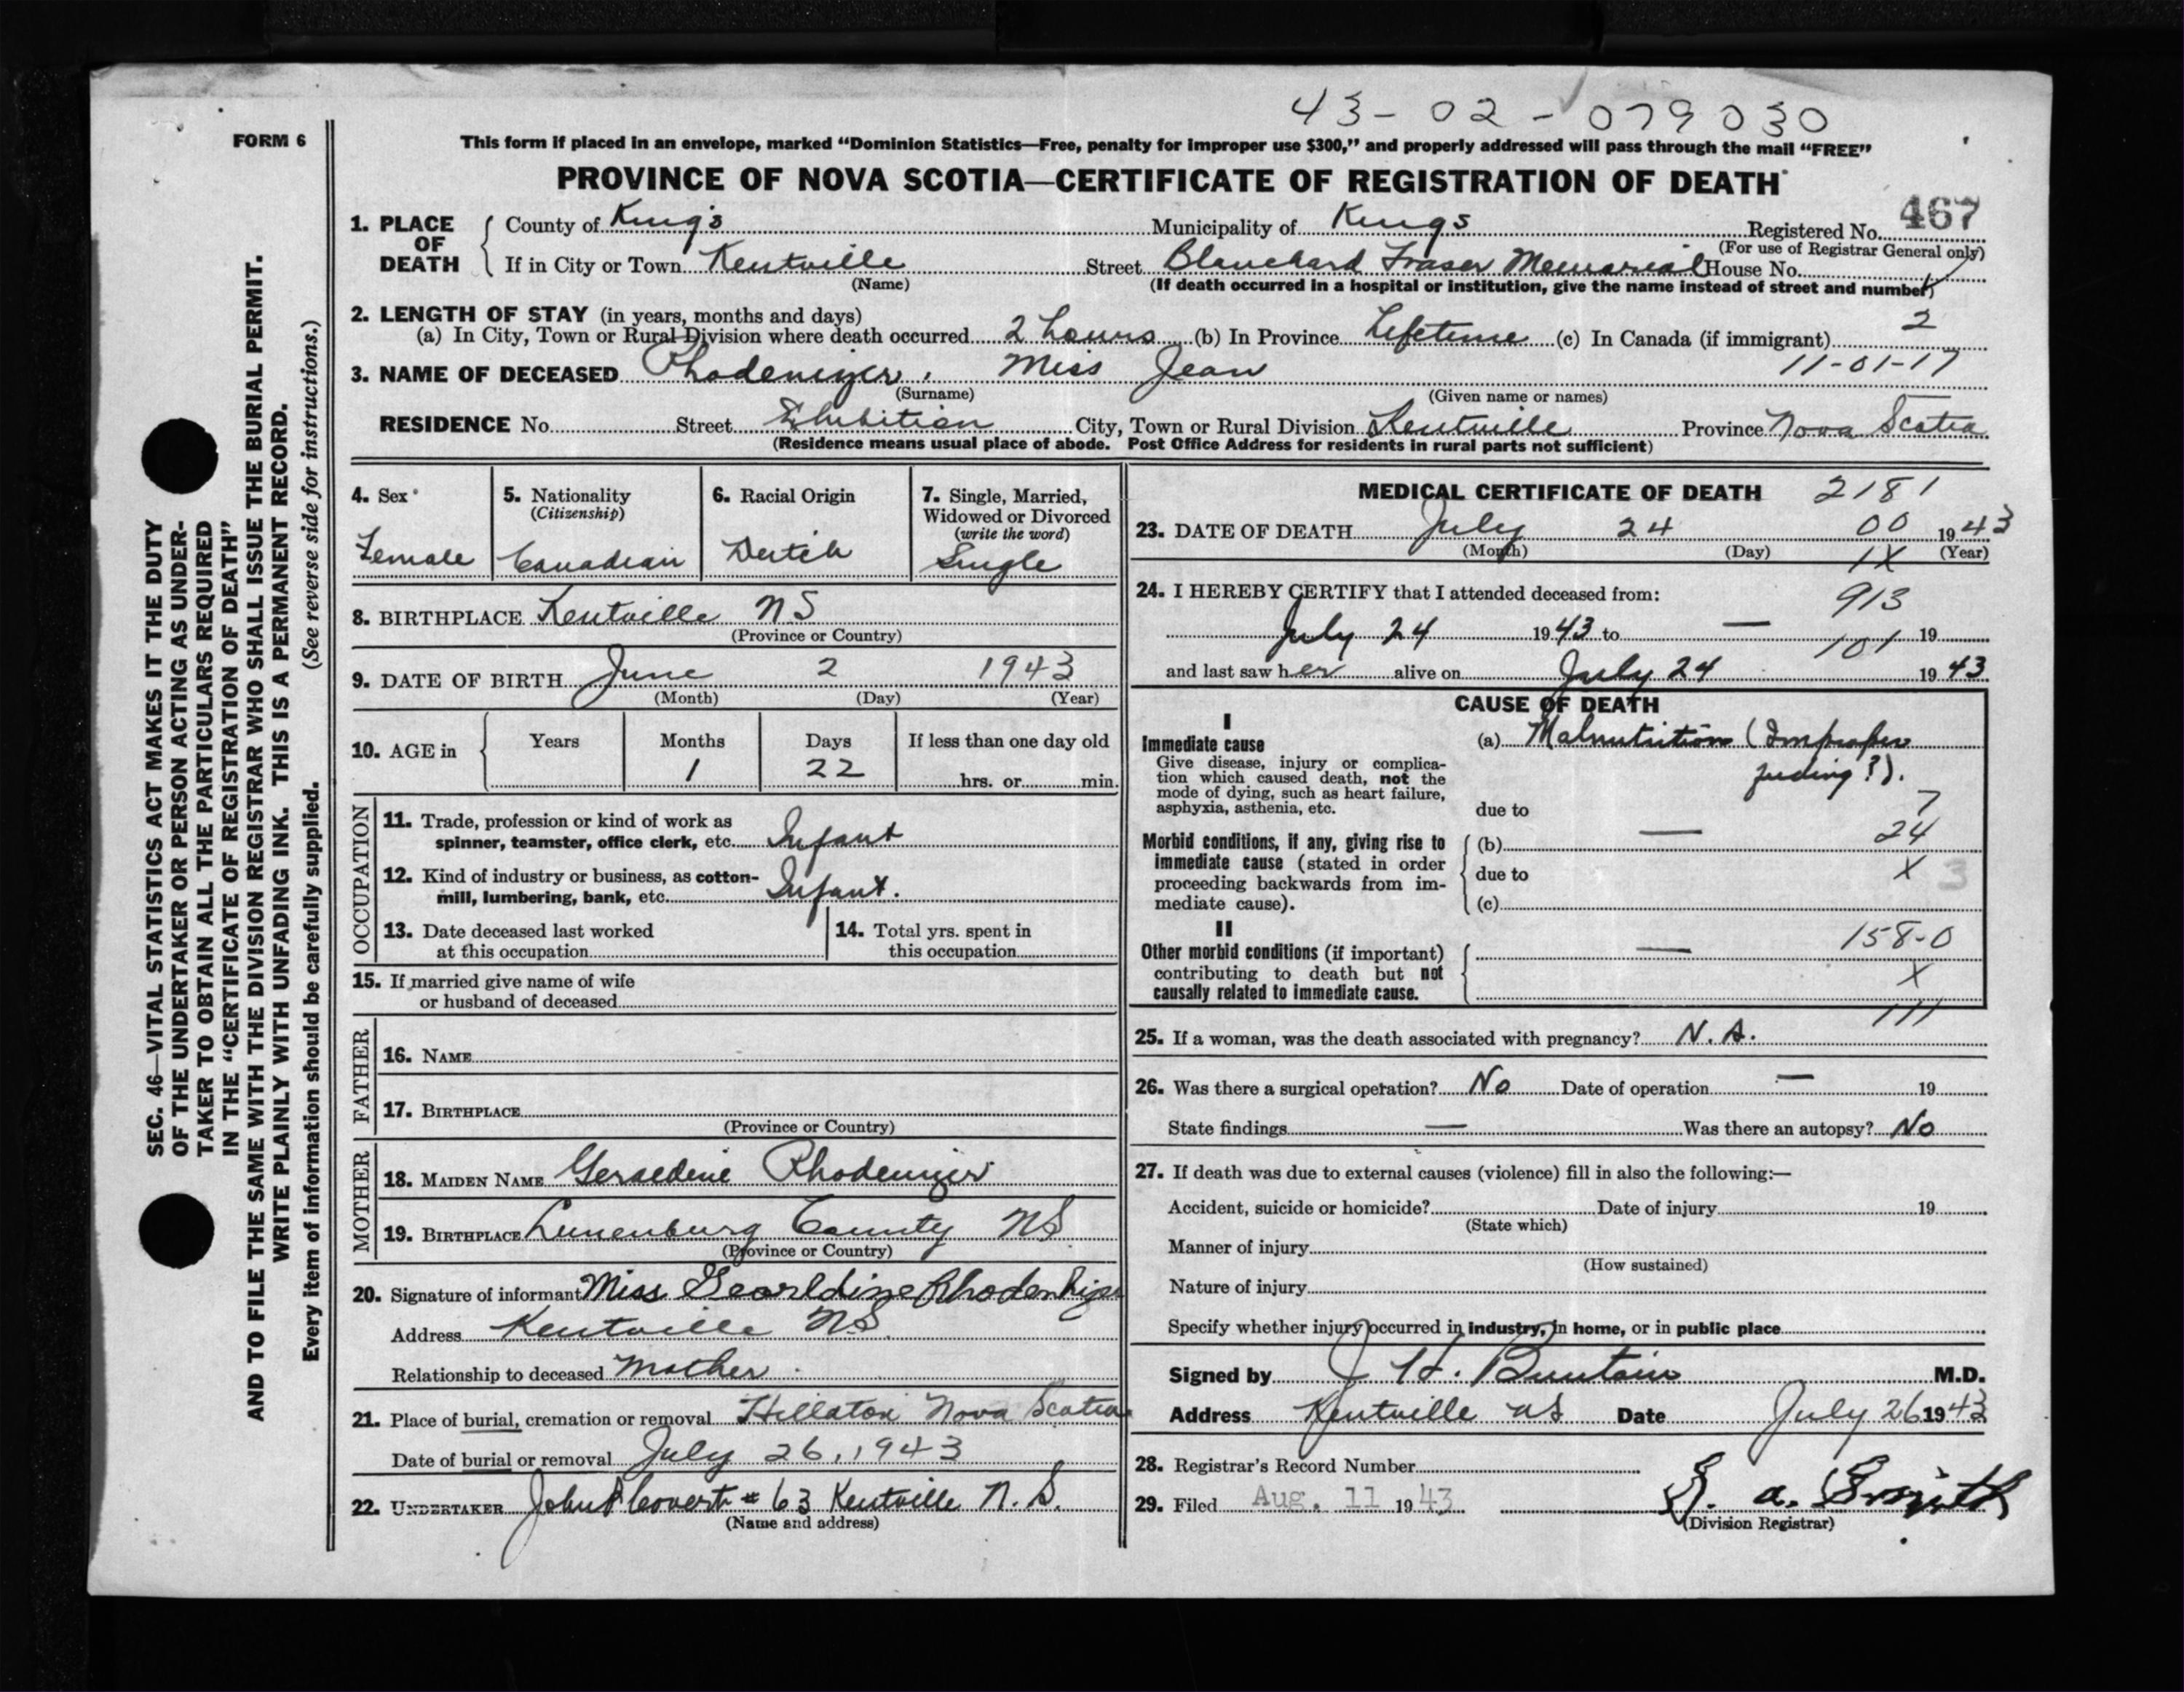 43-02-079030
FORM 6
This form if placed in an envelope, marked "Dominion Statistics—Free, penalty for improper use $300," and properly addressed will pass through the mail "FREE"
PROVINCE OF NOVA SCOTIA—CERTIFICATE OF REGISTRATION OF DEATH
467
1. PLACE OF DEATH County of King's Municipality of Kings Registered No.
(For use of Registrar General only)
If in City or Town Kentville Street Blanchard Fraser Memorial House No.
(Name) (If death occurred in a hospital or institution, give the name instead of street and number)
2. LENGTH OF STAY (in years, months and days)
(a) In City, Town or Rural Division where death occurred 2 hours (b) In Province Lifetime (c) In Canada (if immigrant) 2
3. NAME OF DECEASED Rhodenizer, Miss Jean 11-01-17
(Surname) (Given name or names)
RESIDENCE No. Street Exhibition City, Town or Rural Division Kentville Province Nova Scotia
(Residence means usual place of abode. Post Office Address for residents in rural parts not sufficient)
4. Sex Female
5. Nationality (Citizenship) Canadian
6. Racial Origin Dutch
7. Single, Married, Widowed or Divorced (write the word) Single
8. BIRTHPLACE Kentville NS
(Province or Country)
9. DATE OF BIRTH June 2 1943
(Month) (Day) (Year)
10. AGE in Years Months Days If less than one day old
1 22 hrs. or min.
OCCUPATION
11. Trade, profession or kind of work as
spinner, teamster, office clerk, etc. Infant
12. Kind of industry or business, as cotton-
mill, lumbering, bank, etc. Infant.
13. Date deceased last worked at this occupation
14. Total yrs. spent in this occupation
15. If married give name of wife
or husband of deceased
FATHER
16. NAME
17. BIRTHPLACE
(Province or Country)
MOTHER
18. MAIDEN NAME Geraldine Rhodenizer
19. BIRTHPLACE Lunenburg County NS
(Province or Country)
20. Signature of informant Miss Gearldine Rhodenhizer
Address Kentville NS
Relationship to deceased Mother
21. Place of burial, cremation or removal Hillaton Nova Scotia
Date of burial or removal July 26, 1943
22. UNDERTAKER John Covert # 63 Kentville N. S.
(Name and address)
MEDICAL CERTIFICATE OF DEATH 2181
23. DATE OF DEATH July 24 00 1943
(Month) (Day) 1X (Year)
24. I HEREBY CERTIFY that I attended deceased from: 913
July 24 1943 to — 101 19
and last saw her alive on July 24 1943
CAUSE OF DEATH
I
Immediate cause
Give disease, injury or complica-
tion which caused death, not the
mode of dying, such as heart failure,
asphyxia, asthenia, etc.
(a) Malnutrition (Improper
feeding?).
due to 7
Morbid conditions, if any, giving rise to
immediate cause (stated in order
proceeding backwards from im-
mediate cause).
(b) — 24
due to X 3
(c)
II
Other morbid conditions (if important)
contributing to death but not
causally related to immediate cause.
— 158-0
X
111
25. If a woman, was the death associated with pregnancy? N. A.
26. Was there a surgical operation? No Date of operation — 19
State findings — Was there an autopsy? No
27. If death was due to external causes (violence) fill in also the following:—
Accident, suicide or homicide? Date of injury 19
(State which)
Manner of injury
(How sustained)
Nature of injury
Specify whether injury occurred in industry, in home, or in public place
Signed by J H. Buntain M.D.
Address Kentville NS Date July 26 1943
28. Registrar's Record Number
29. Filed Aug. 11 1943
(Division Registrar)
SEC. 46—VITAL STATISTICS ACT MAKES IT THE DUTY
OF THE UNDERTAKER OR PERSON ACTING AS UNDER-
TAKER TO OBTAIN ALL THE PARTICULARS REQUIRED
IN THE "CERTIFICATE OF REGISTRATION OF DEATH"
AND TO FILE THE SAME WITH THE DIVISION REGISTRAR WHO SHALL ISSUE THE BURIAL PERMIT.
WRITE PLAINLY WITH UNFADING INK. THIS IS A PERMANENT RECORD.
Every item of information should be carefully supplied. (See reverse side for instructions.)